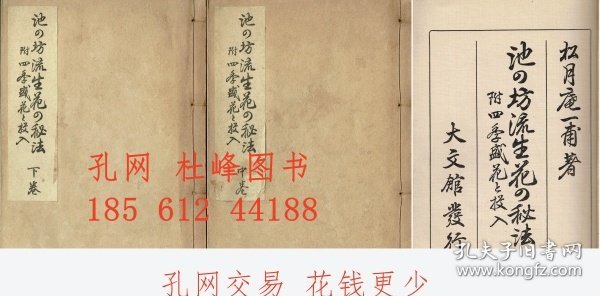 池の坊流生花の秘法
附 四季盛花と投入
下巻
池の坊流生花の秘法
附 四季盛花と投入
中巻
松月庵一甫著
池の坊流生花の秘法
附 四季盛花と投入
大文館發行
孔网 杜峰图书
185 612 44188
孔夫子旧书网
www.kongfz.com
孔网交易 花钱更少